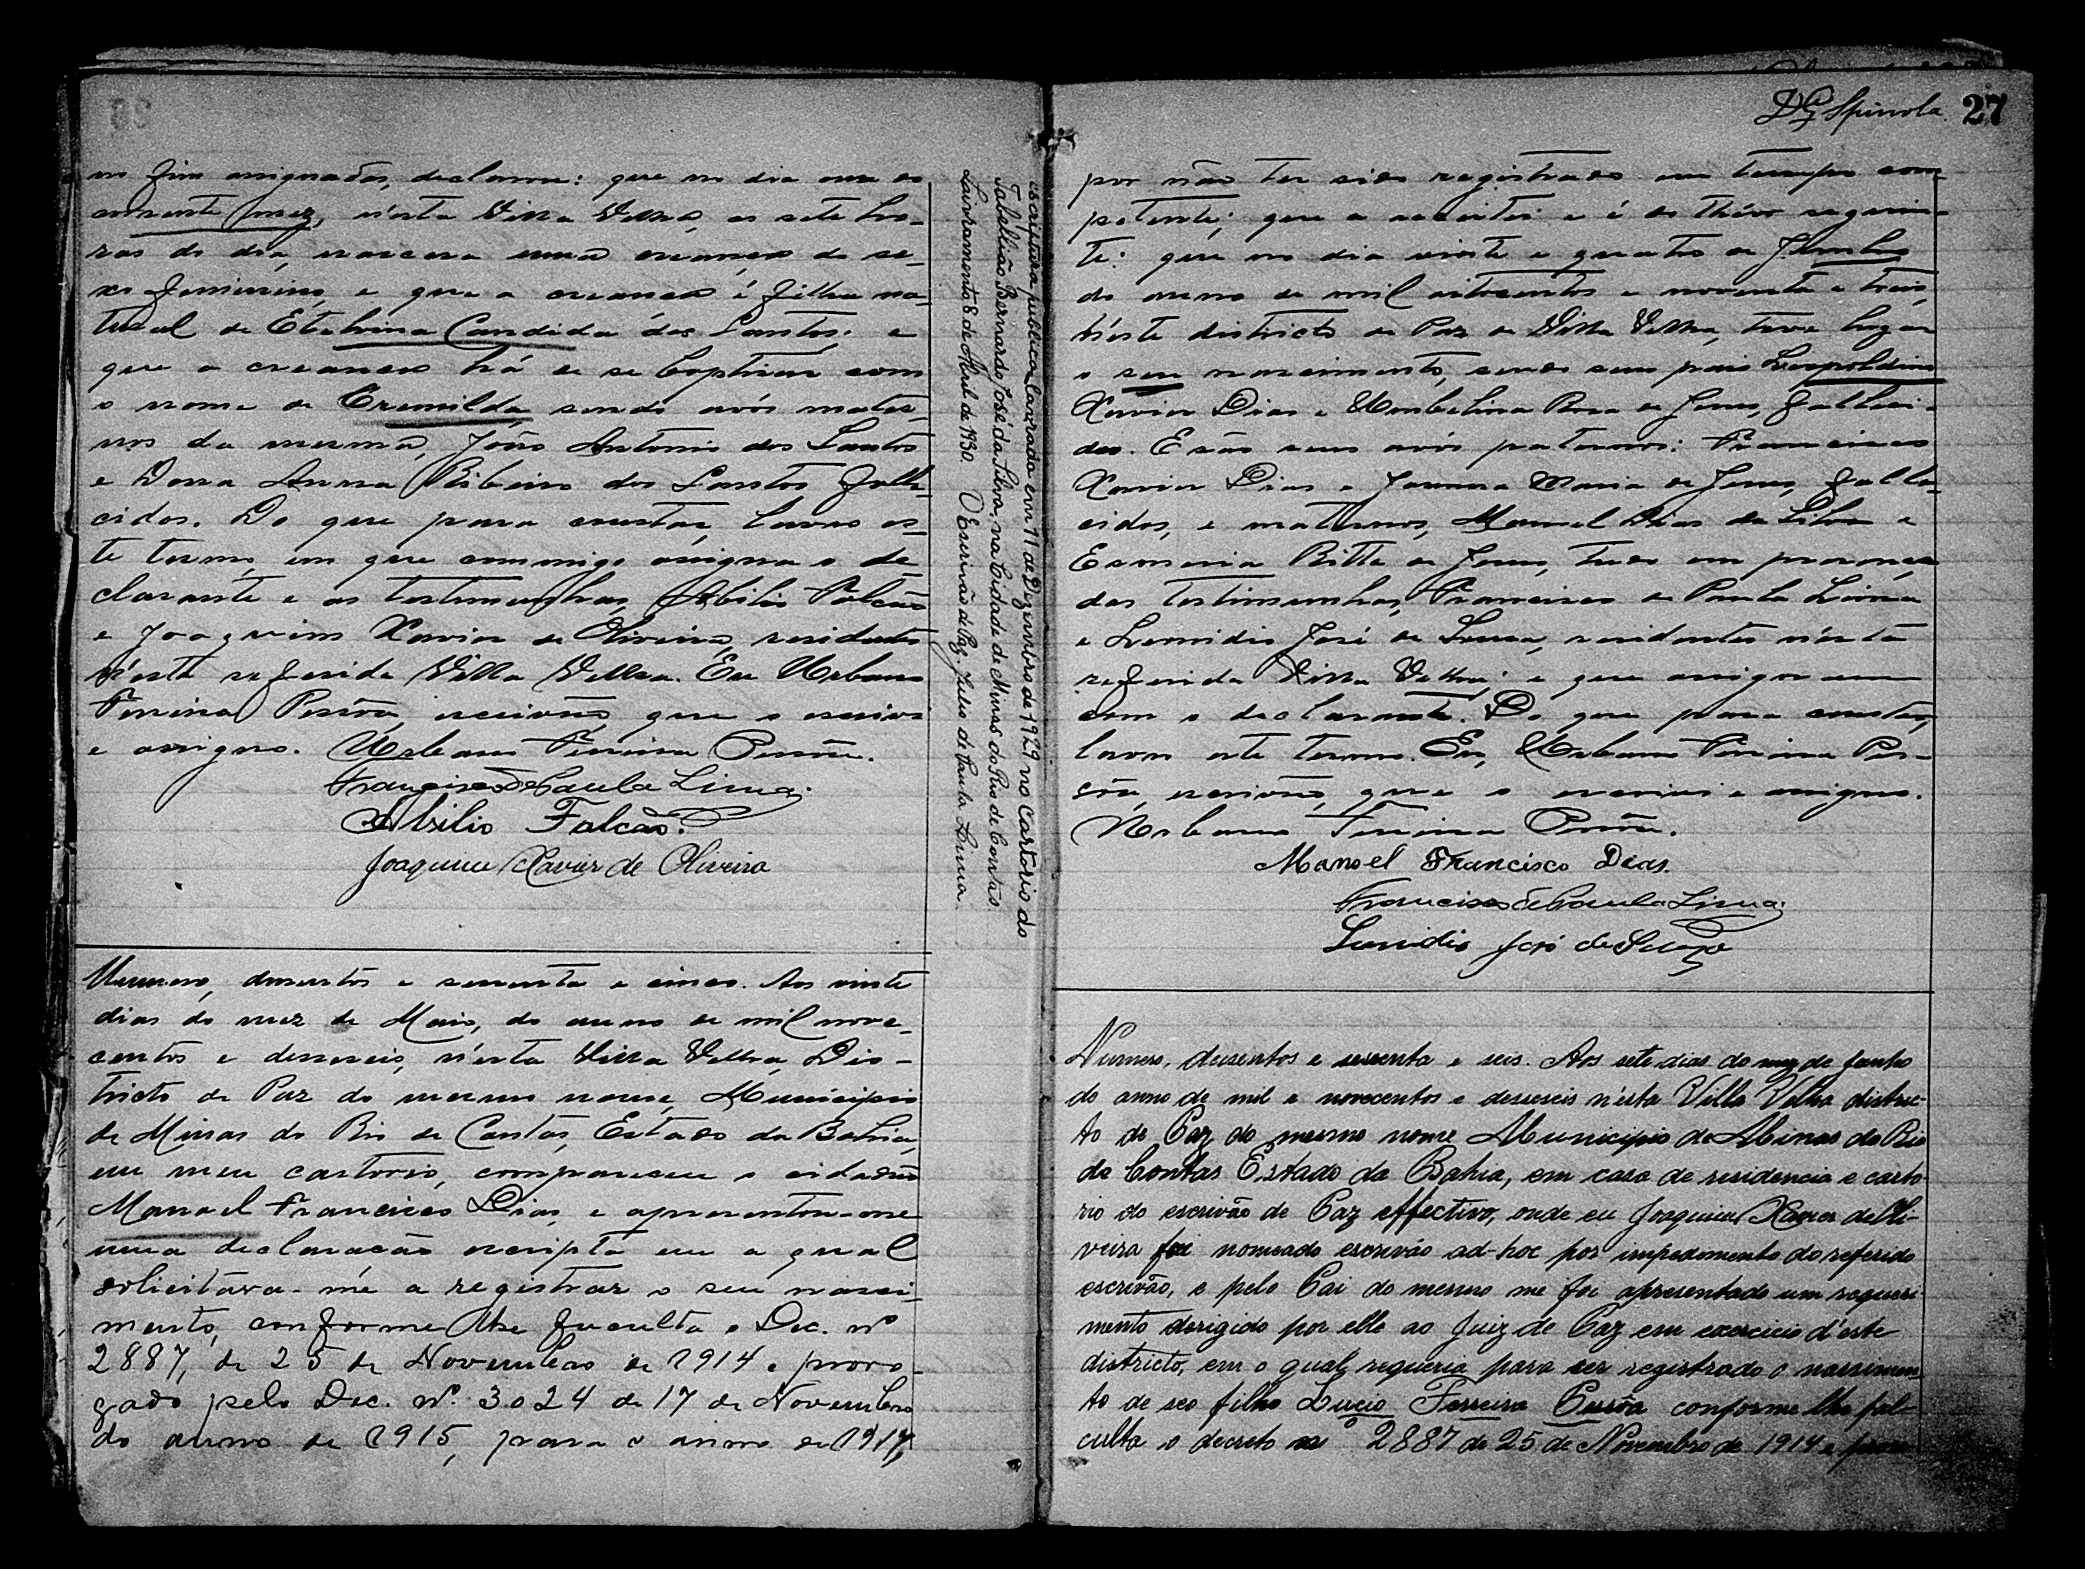 no fim assignados, declarou: que no dia onze do
corrente mez, n'esta Villa Velha, as sete ho-
ras do dia, nascera uma creança do se-
xo feminino, e que a creança é filha na-
tural de Etelvina Candida dos Santos; e
que a creança há de se baptisar com
o nome de Cremilda, sendo avós mater-
nos da mesma, João Antonio dos Santos
e Dona Anna Ribeiro dos Santos, falle-
cidos. Do que para constar, lavro es-
te termo, em que commigo assigna o de-
clarante e as testimunhas, Abilio Falcão
e Joaquim Xavier de Oliveira, residentes
n'esta referida Villa Velha. Eu Urbano
Ferreira Pessôa, escrivão, que o escrevi
e assigno. Urbano Ferreira Pessôa.
Francisco de Paula Lima.
Abilio Falcão.
Joaquim Xavier de Oliveira
Numero, dusentos e sessenta e cinco. Aos vinte
dias do mez de Maio, do anno de mil nove-
centos e desseseis, n'esta Villa Velha, Dis-
tricto de Paz do mesmo nome, Municipio
de Minas do Rio de Contas, Estado da Bahia,
em meu cartorio, compareceu o cidadão
Manoel Francisco Dias, e apresentou-me
uma declaração escripta em a qual
solicitava-me a registrar o seu nasci-
mento, conforme lhe faculta o Dec. nº
2887, de 25 de Novembro de 1914 e proro-
gado pelo Dec. Nº. 3024 de 17 de Novembro
do anno de 1915, para o anno de 1917,
escriptura publica lavrada em 11 de Dezembro de 1929 no Cartorio do
Tabellião Bernardo José da Silva, na Cidade de Minas do Rio de Contas.
Livramento 8 de Abril de 1930. O Escrivão de Paz. Julio de Paula Lima.
D G Spinola 27
por não ter sido registrado em tempo com-
petente; que a
te: que no dia vinte e quatro de Junho
do anno de mil oitocentos e noventa e tres,
n'este districto de Paz de Villa Velha, teve lugar
o seu nascimento, sendo seus pais Leopoldino
Xavier Dias e Umbelina Rosa de Jesus, falleci-
dos. E são seus avós paternos: Francisco
Xavier Dias e Joanna Maria de Jesus, falle-
cidos, e maternos, Manoel Dias da Silva e
Esmeria Ritta de Jesus, tudo em presença
das testimunhas, Francisco de Paula Lima
e Leonidio José de Souza, residentes n'esta
referida Villa Velha; e que assignam
com o declarante. Do que para constar,
lavro este termo. Eu, Urbano Ferreira Pes-
sôa, escrivão, que o escrevi e assigno.
Urbano Ferreira Pessôa.
Manoel Francisco Dias.
Francisco de Paula Lima.
Leonidio José de Souza
Numero, dusentos e sessenta e seis. Aos sete dias do mez de Junho
do anno de mil e novecentos e desseseis n'esta Villa Velha distric-
to de Paz do mesmo nome Municipio de Minas do Rio
de Contas Estado da Bahia, em casa de residencia e carto
rio do escrivão de Paz effectivo, onde eu Joaquim Xavier de Oli-
veira foi nomeado escrivão ad-hoc por impedimento do referido
escrivão, e pelo Pai do mesmo me foi apresentado um requeri
mento derigido por elle ao Juiz de Paz em exercicio d'este
districto, em o qual requeria para ser registrado o nassimen
to de seo filho Lucio Ferreira Pessôa conforme lhe fal-
culta o decreto nº 2887 de 25 de Novembro de 1914 e proro